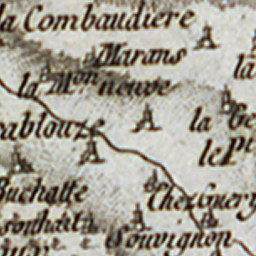 la Combaudiere
Marans
la
la M.on neuve
la Ge
ablouze
le Pt
Buchatte
Chez
Souvignon